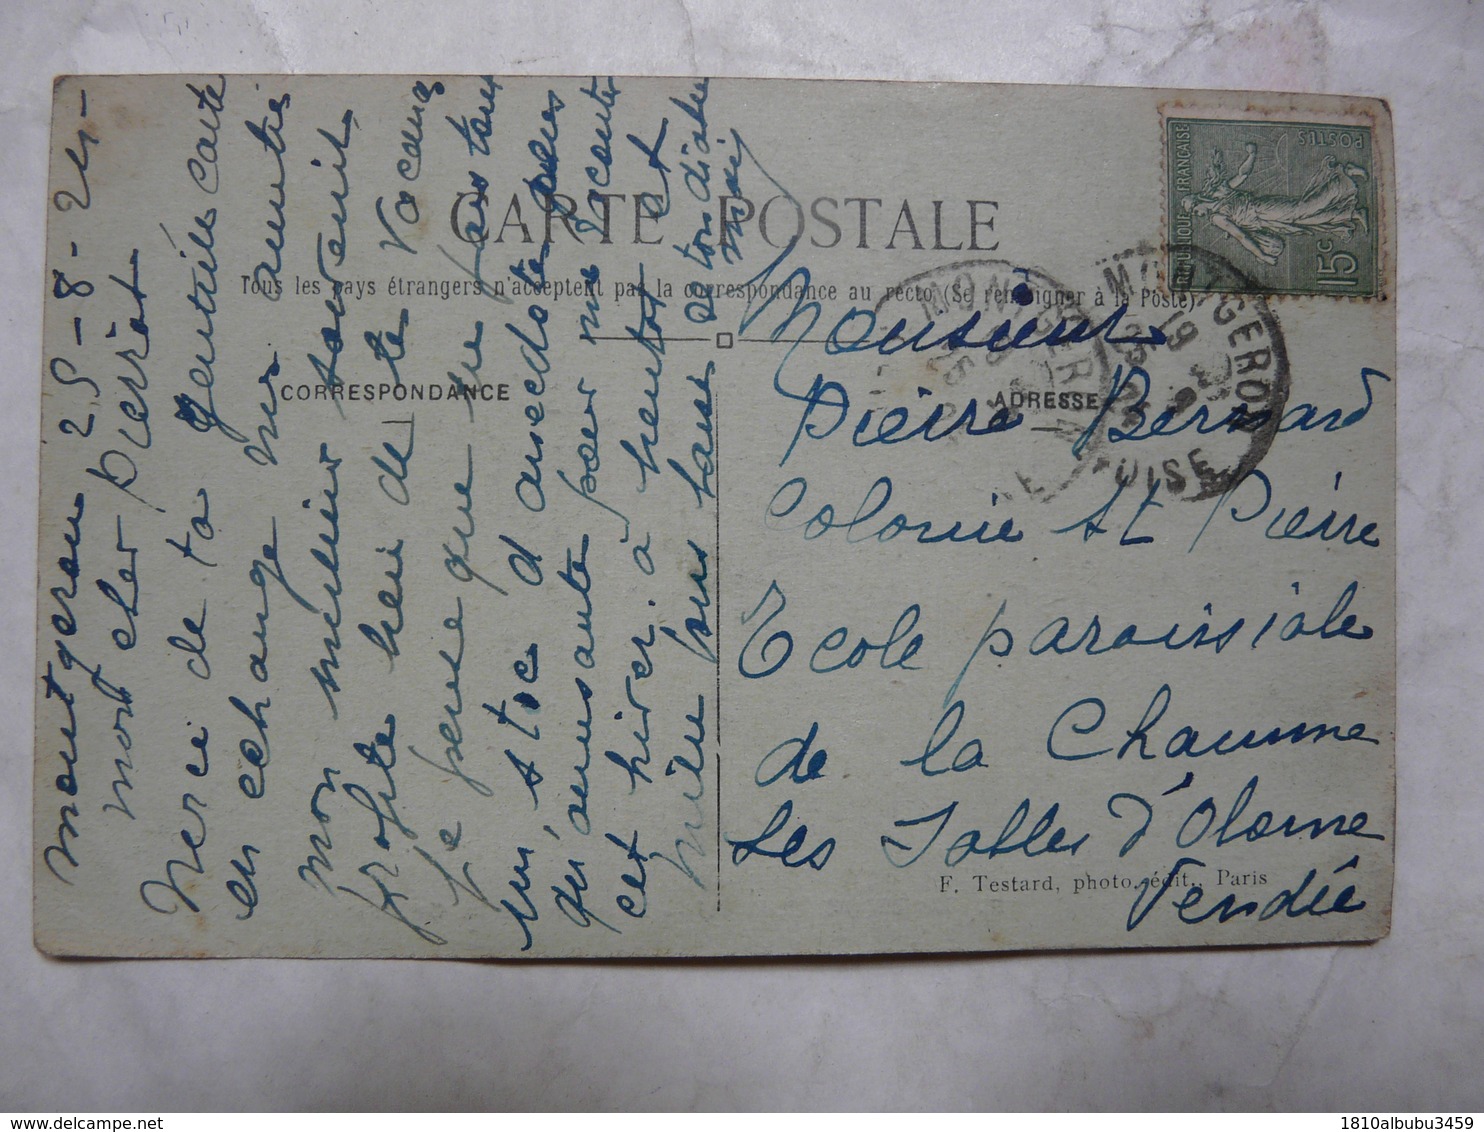 CARTE POSTALE
Tous les pays étrangers n'acceptent pas la correspondance au recto (Se renseigner à la Poste)
CORRESPONDANCE
ADRESSE
montgeron 25-8-24-
mon cher pierrot
Merci de ta gentille carte
en échange mi amitié
mon meilleur souvenir
profite bien de te vacances
je pense que tu fais ton
un stoc d anecdote plus
qu'amusante pour me raconter
cet hiver. à bientot et
mille fois
de ton
Monsieur
Pierre Bernard
Colonie St Pierre
Ecole paroissiale
de la Chaume
Les Sables d'Olonne
Vendée
F. Testard, photo. édit., Paris
REPUBLIQUE FRANÇAISE
POSTES
15c
MONTGERON
OISE
MONTGERON
delcampe.net
1810albubu3459